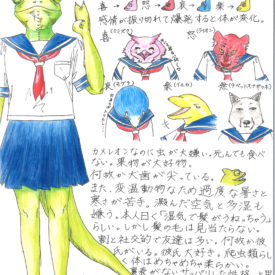 喜→ 怒→ 哀→ 楽→
感情が振り切れて爆発すると体が変化。
喜(ミミズク)
怒(ライオン)
哀(モグラ)
楽(イルカ)
カメレオンなのに虫が大嫌い。死んでも食べ
ない。果物が大好物。
何故か犬歯が尖っている。
また、変温動物なため過度な暑さと
寒さが苦手。澱んだ空気と多湿も
嫌う。本人曰く「湿気で髪がうねっちゃう
らしい。しかし髪の毛は見当たらない。
割と社交的で友達は多い。何故か彼
氏がいる。彼氏大好き。爬虫類らし
く体はめちゃめちゃ柔らかい。